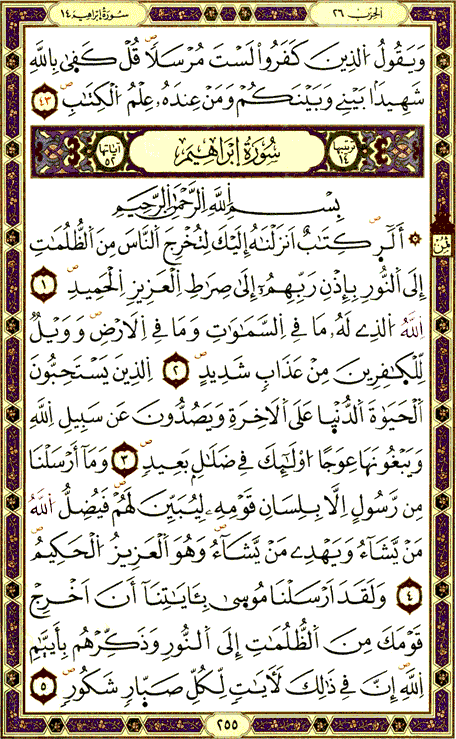 الحزب ٢٦
سورة إبراهيم ١٤
وَيَقُولُ الذِينَ كَفَرُواْ لَسْتَ مُرْسَلًا قُلْ كَفىٰ بِاللَّهِ
شَهِيدًا بَيْنِي وَبَيْنَكُمْ وَمَنْ عِندَهُ عِلْمُ الْكِتَابِ ٤٣
ترتيبها ١٤ سُورَةُ إِبْرَاهِيمَ آياتها ٥٢
بِسْمِ اللَّهِ الرَّحْمَٰنِ الرَّحِيمِ
أَلَٓر كِتَابٌ اَنزَلْنَاهُ إِلَيْكَ لِتُخْرِجَ النَّاسَ مِنَ الظُّلُمَاتِ
إِلَى النُّورِ بِإِذْنِ رَبِّهِمُۥٓ إِلَىٰ صِرَاطِ الْعَزِيزِ الْحَمِيدِ ١
اللَّهُ الذِي لَهُ مَا فِي السَّمَاوَاتِ وَمَا فِي الْأَرْضِ وَوَيْلٌ
لِّلْكَافِرِينَ مِنْ عَذَابٍ شَدِيدٍ ٢ الذِينَ يَسْتَحِبُّونَ
الْحَيَوٰةَ الدُّنْيَا عَلَى الْأَخِرَةِ وَيَصُدُّونَ عَن سَبِيلِ اللَّهِ
وَيَبْغُونَهَا عِوَجًا اوْلَٰئِكَ فِي ضَلَالٍ بَعِيدٍ ٣ وَمَآ أَرْسَلْنَا
مِن رَّسُولٍ اِلَّا بِلِسَانِ قَوْمِهِ لِيُبَيِّنَ لَهُمْ فَيُضِلُّ اللَّهُ
مَنْ يَّشَآءُ وَيَهْدِي مَنْ يَّشَآءُ وَهُوَ الْعَزِيزُ الْحَكِيمُ
٤ وَلَقَدَ اَرْسَلْنَا مُوسىٰ بِـَٔايَاتِنَآ أَنَ اَخْرِجْ
قَوْمَكَ مِنَ الظُّلُمَاتِ إِلَى النُّورِ وَذَكِّرْهُم بِأَيَّامِ
اللَّهِ إِنَّ فِي ذَالِكَ لَأَيَاتٍ لِّكُلِّ صَبَّارٍ شَكُورٍ ٥
٢٥٥